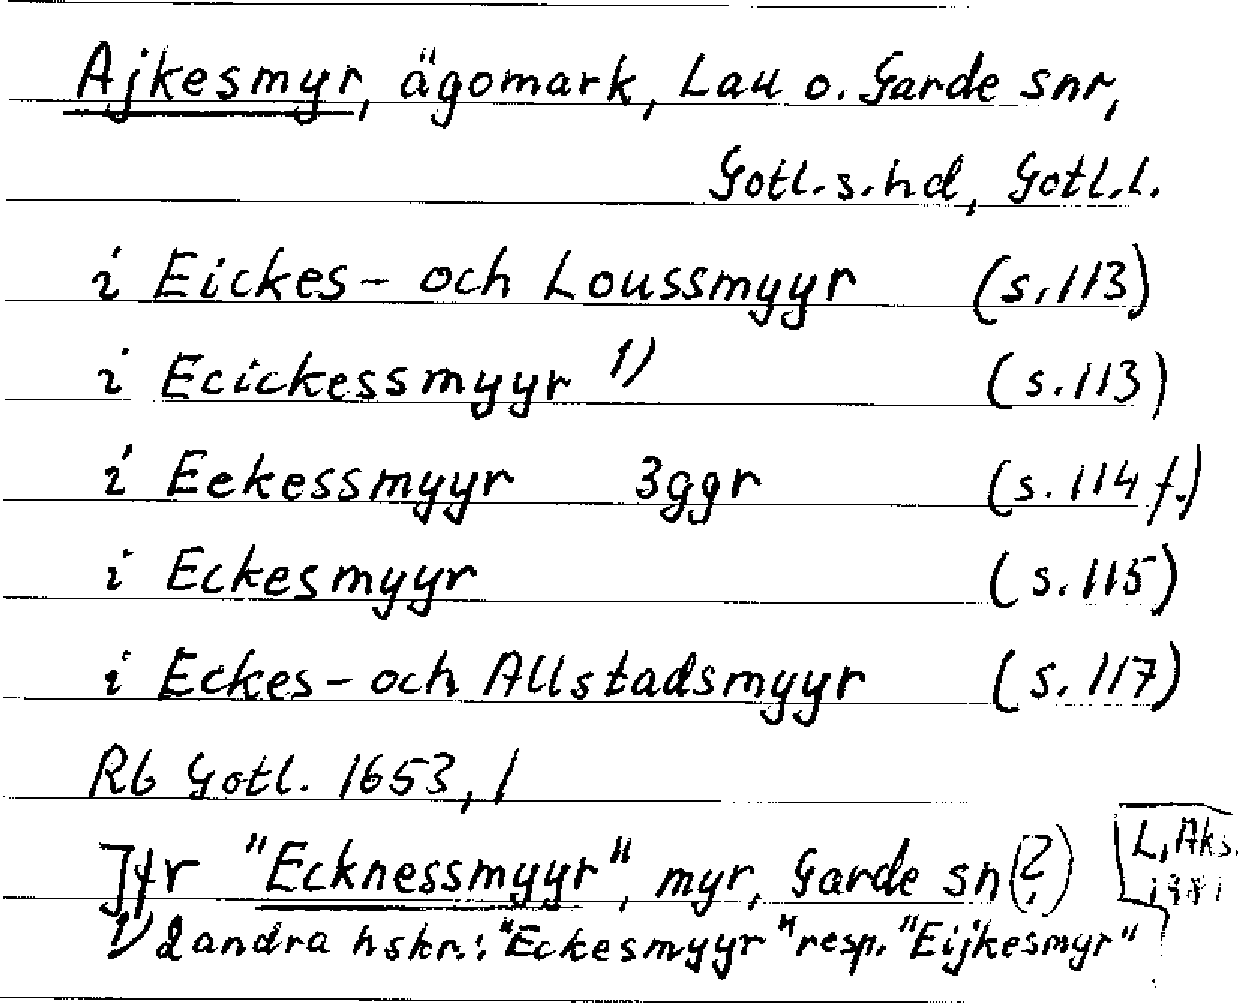 Ajkesmyr, ägomark, Lau o. Garde snr,
Gotl.s.hd, Gotl.l.
i Eickes- och Loussmyyr (s.113)
i Ecickessmyyr 1) (s.113)
i Eekessmyyr 3ggr (s.114 f.)
i Eckesmyyr (s.115)
i Eckes- och Allstadsmyyr (s.117)
Rb Gotl. 1653, 1
Jfr "Ecknessmyyr", myr, Garde sn(?)
L, Aks.
1) 2 andra hskr.: "Eckesmyyr" resp. "Eijkesmyr"